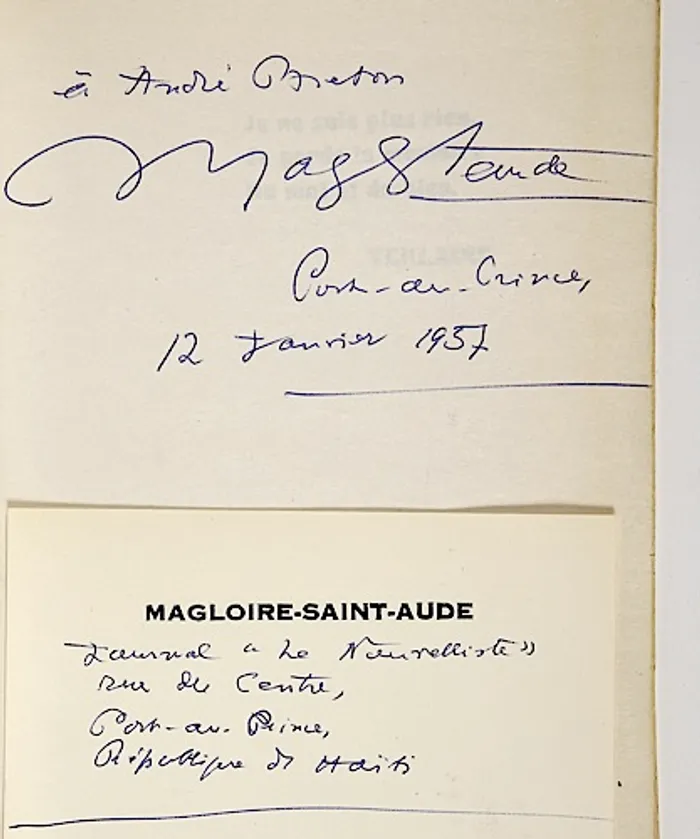 à André Breton
Mag St Aude
Port-au-Prince,
12 Janvier 1957
MAGLOIRE-SAINT-AUDE
Journal "Le Nouvelliste"
rue du Centre,
Port-au-Prince,
République d'Haïti